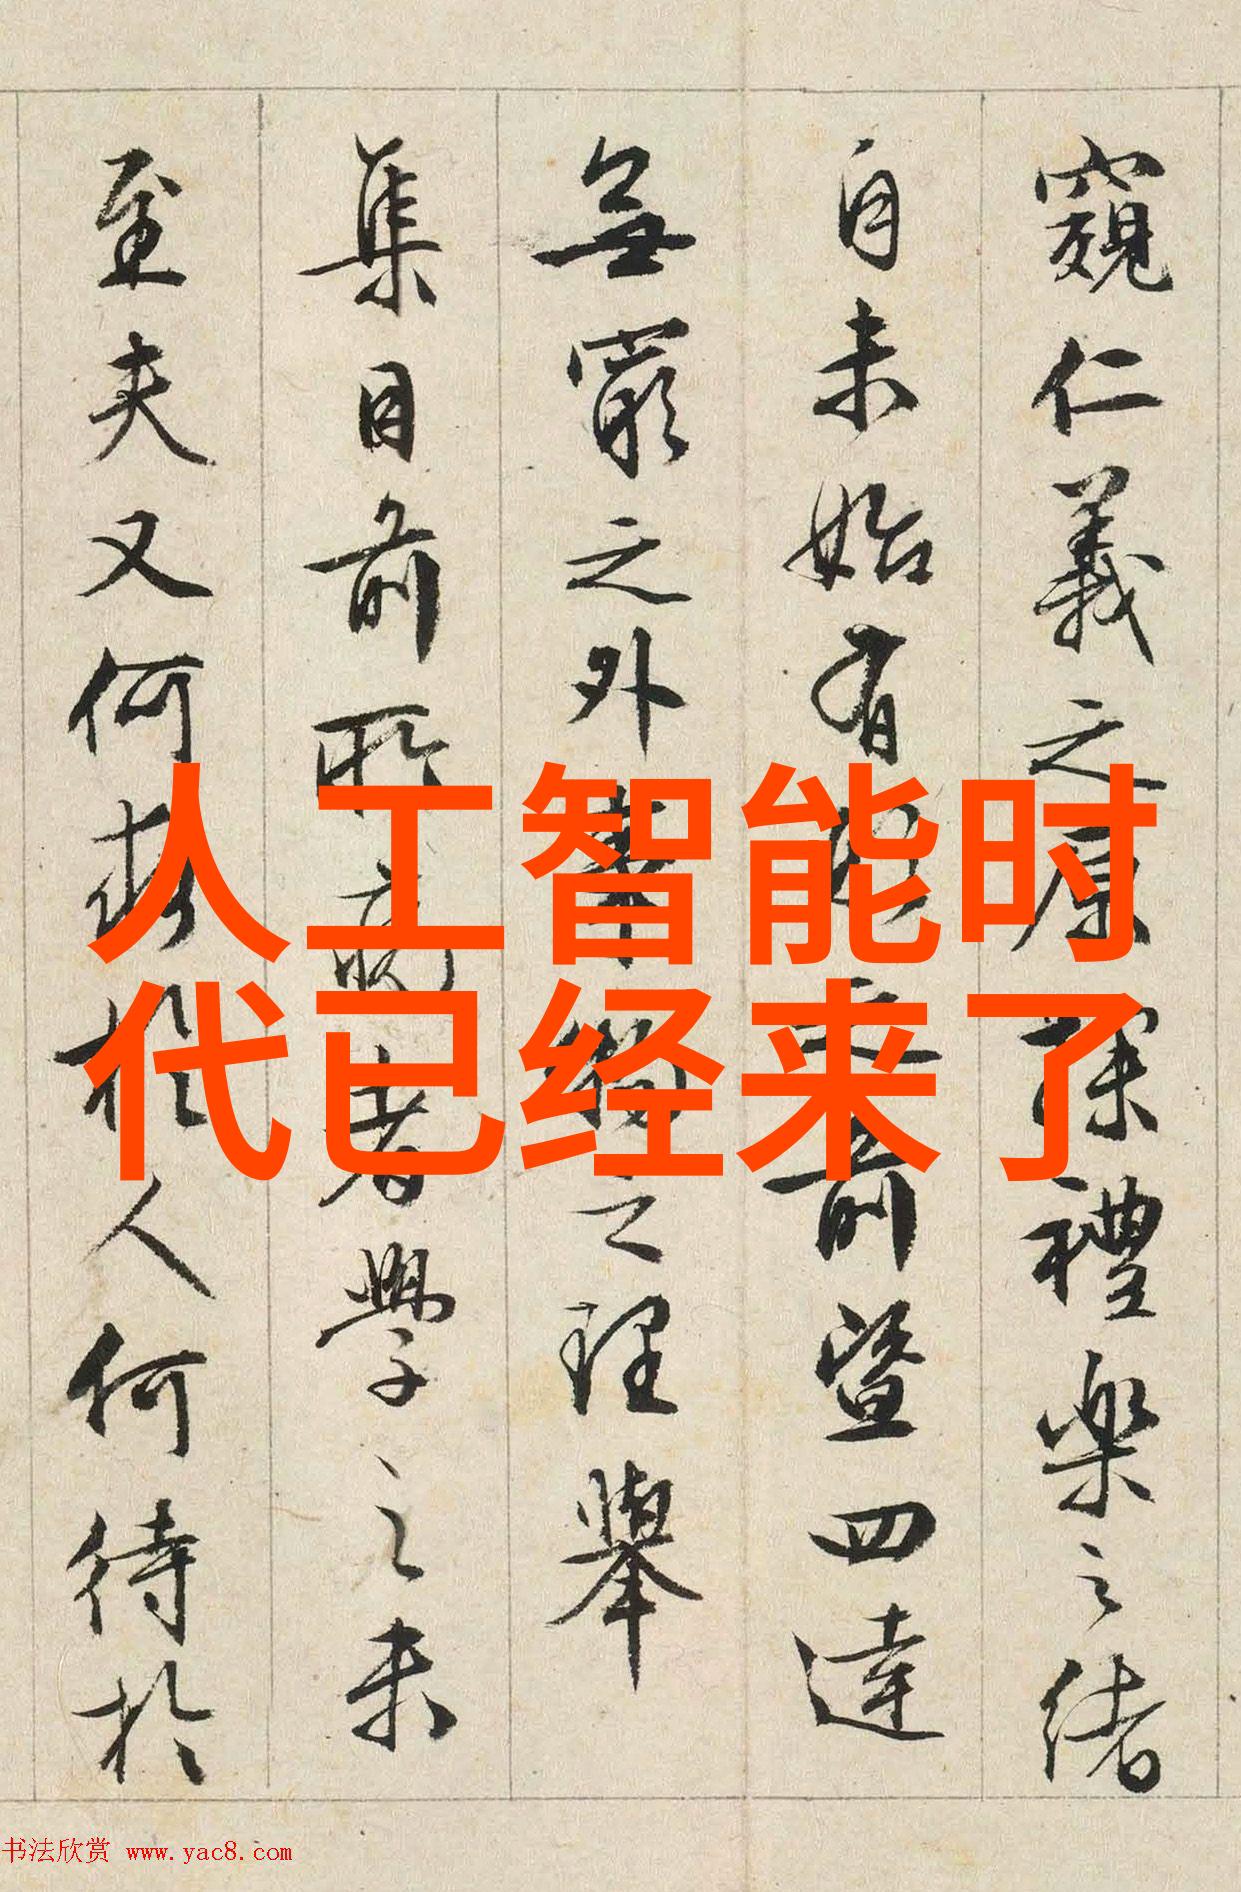 窺仁義之原探禮樂之緒
自未始有形之前暨四達
無窮之外事物之理舉
集目前所病者學之未
至夫又何求於人何待於
人工智能时
代已经来了
书法欣赏 www.yac8.com